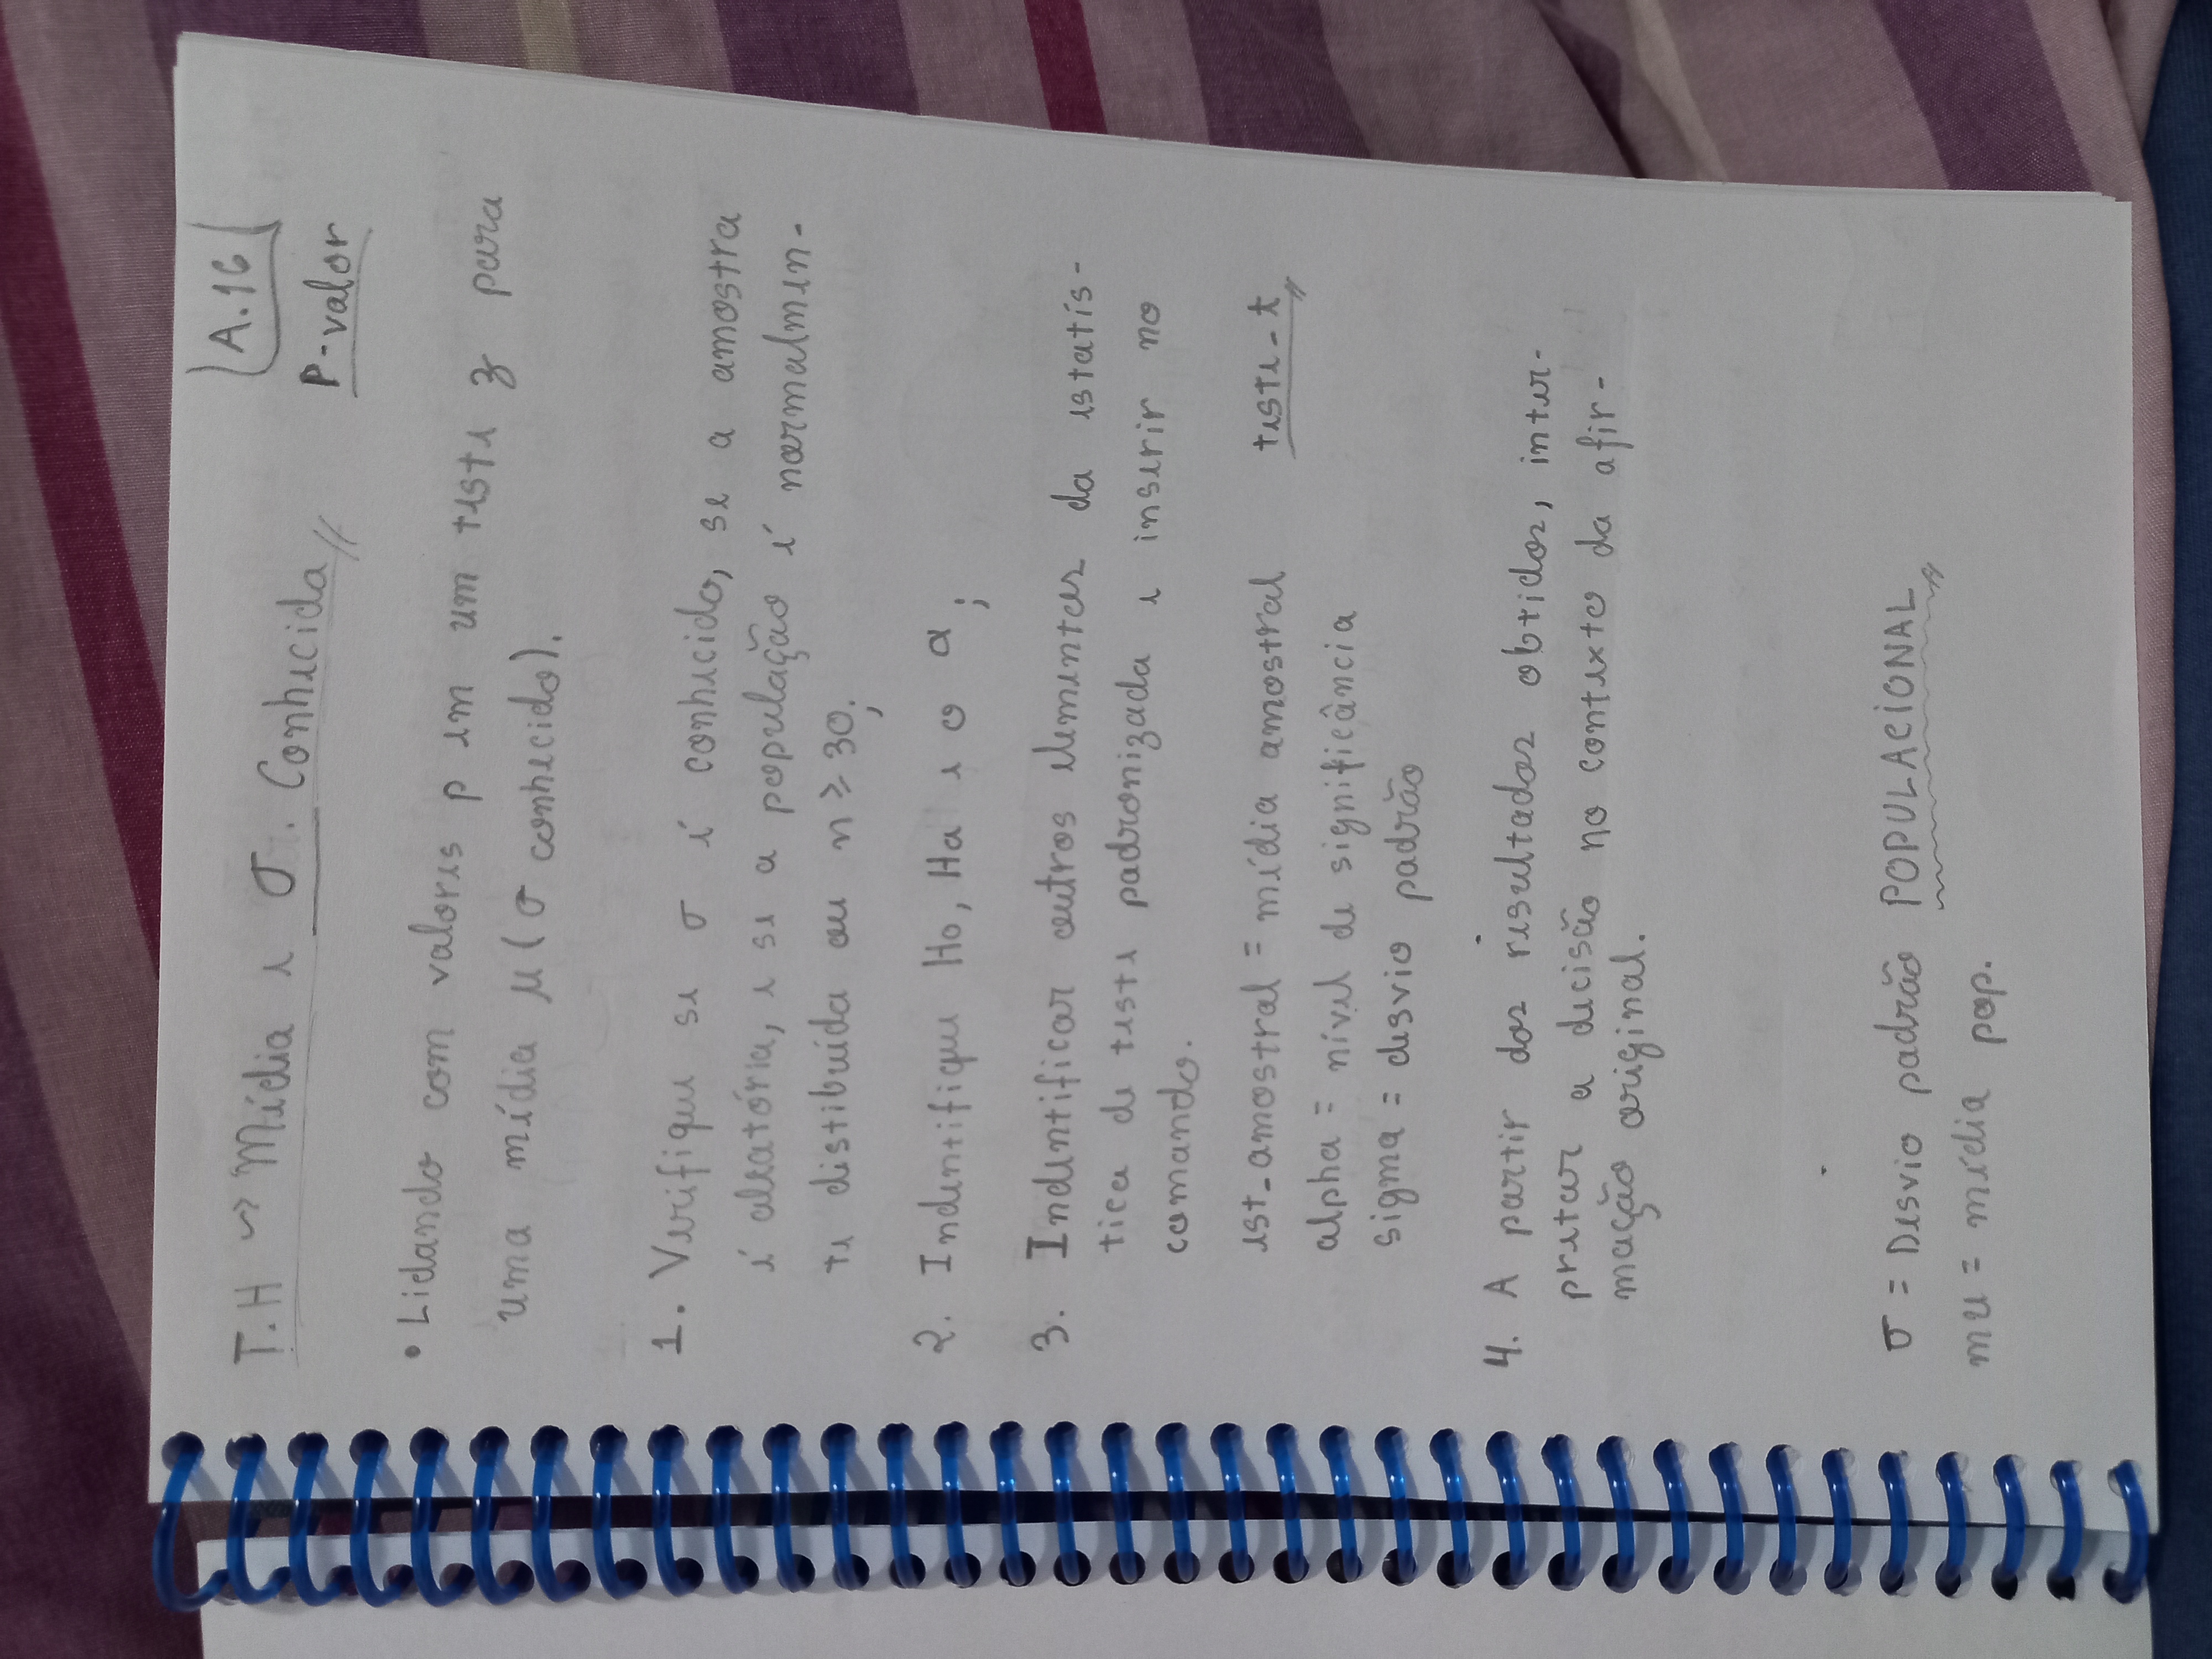 A.16
T.H ~> Média e σ. Conhecida //
P-valor
• Lidando com valores p em um teste z para
uma média μ (σ conhecido).
1. Verifique se σ é conhecido, se a amostra
é aleatória, e se a população é normalmen-
te distibuída ou n ≥ 30;
2. Indentifique Ho, Ha e o α;
3. Indentificar outros elementos da estatís-
tica de teste padronizada e inserir no
comando.
est_amostral = média amostral teste_t
alpha = nível de significância
sigma = desvio padrão
4. A partir dos resultados obtidos, inter-
pretar a decisão no contexto da afir-
mação original.
σ = Desvio padrão POPULACIONAL
mu = média pop.